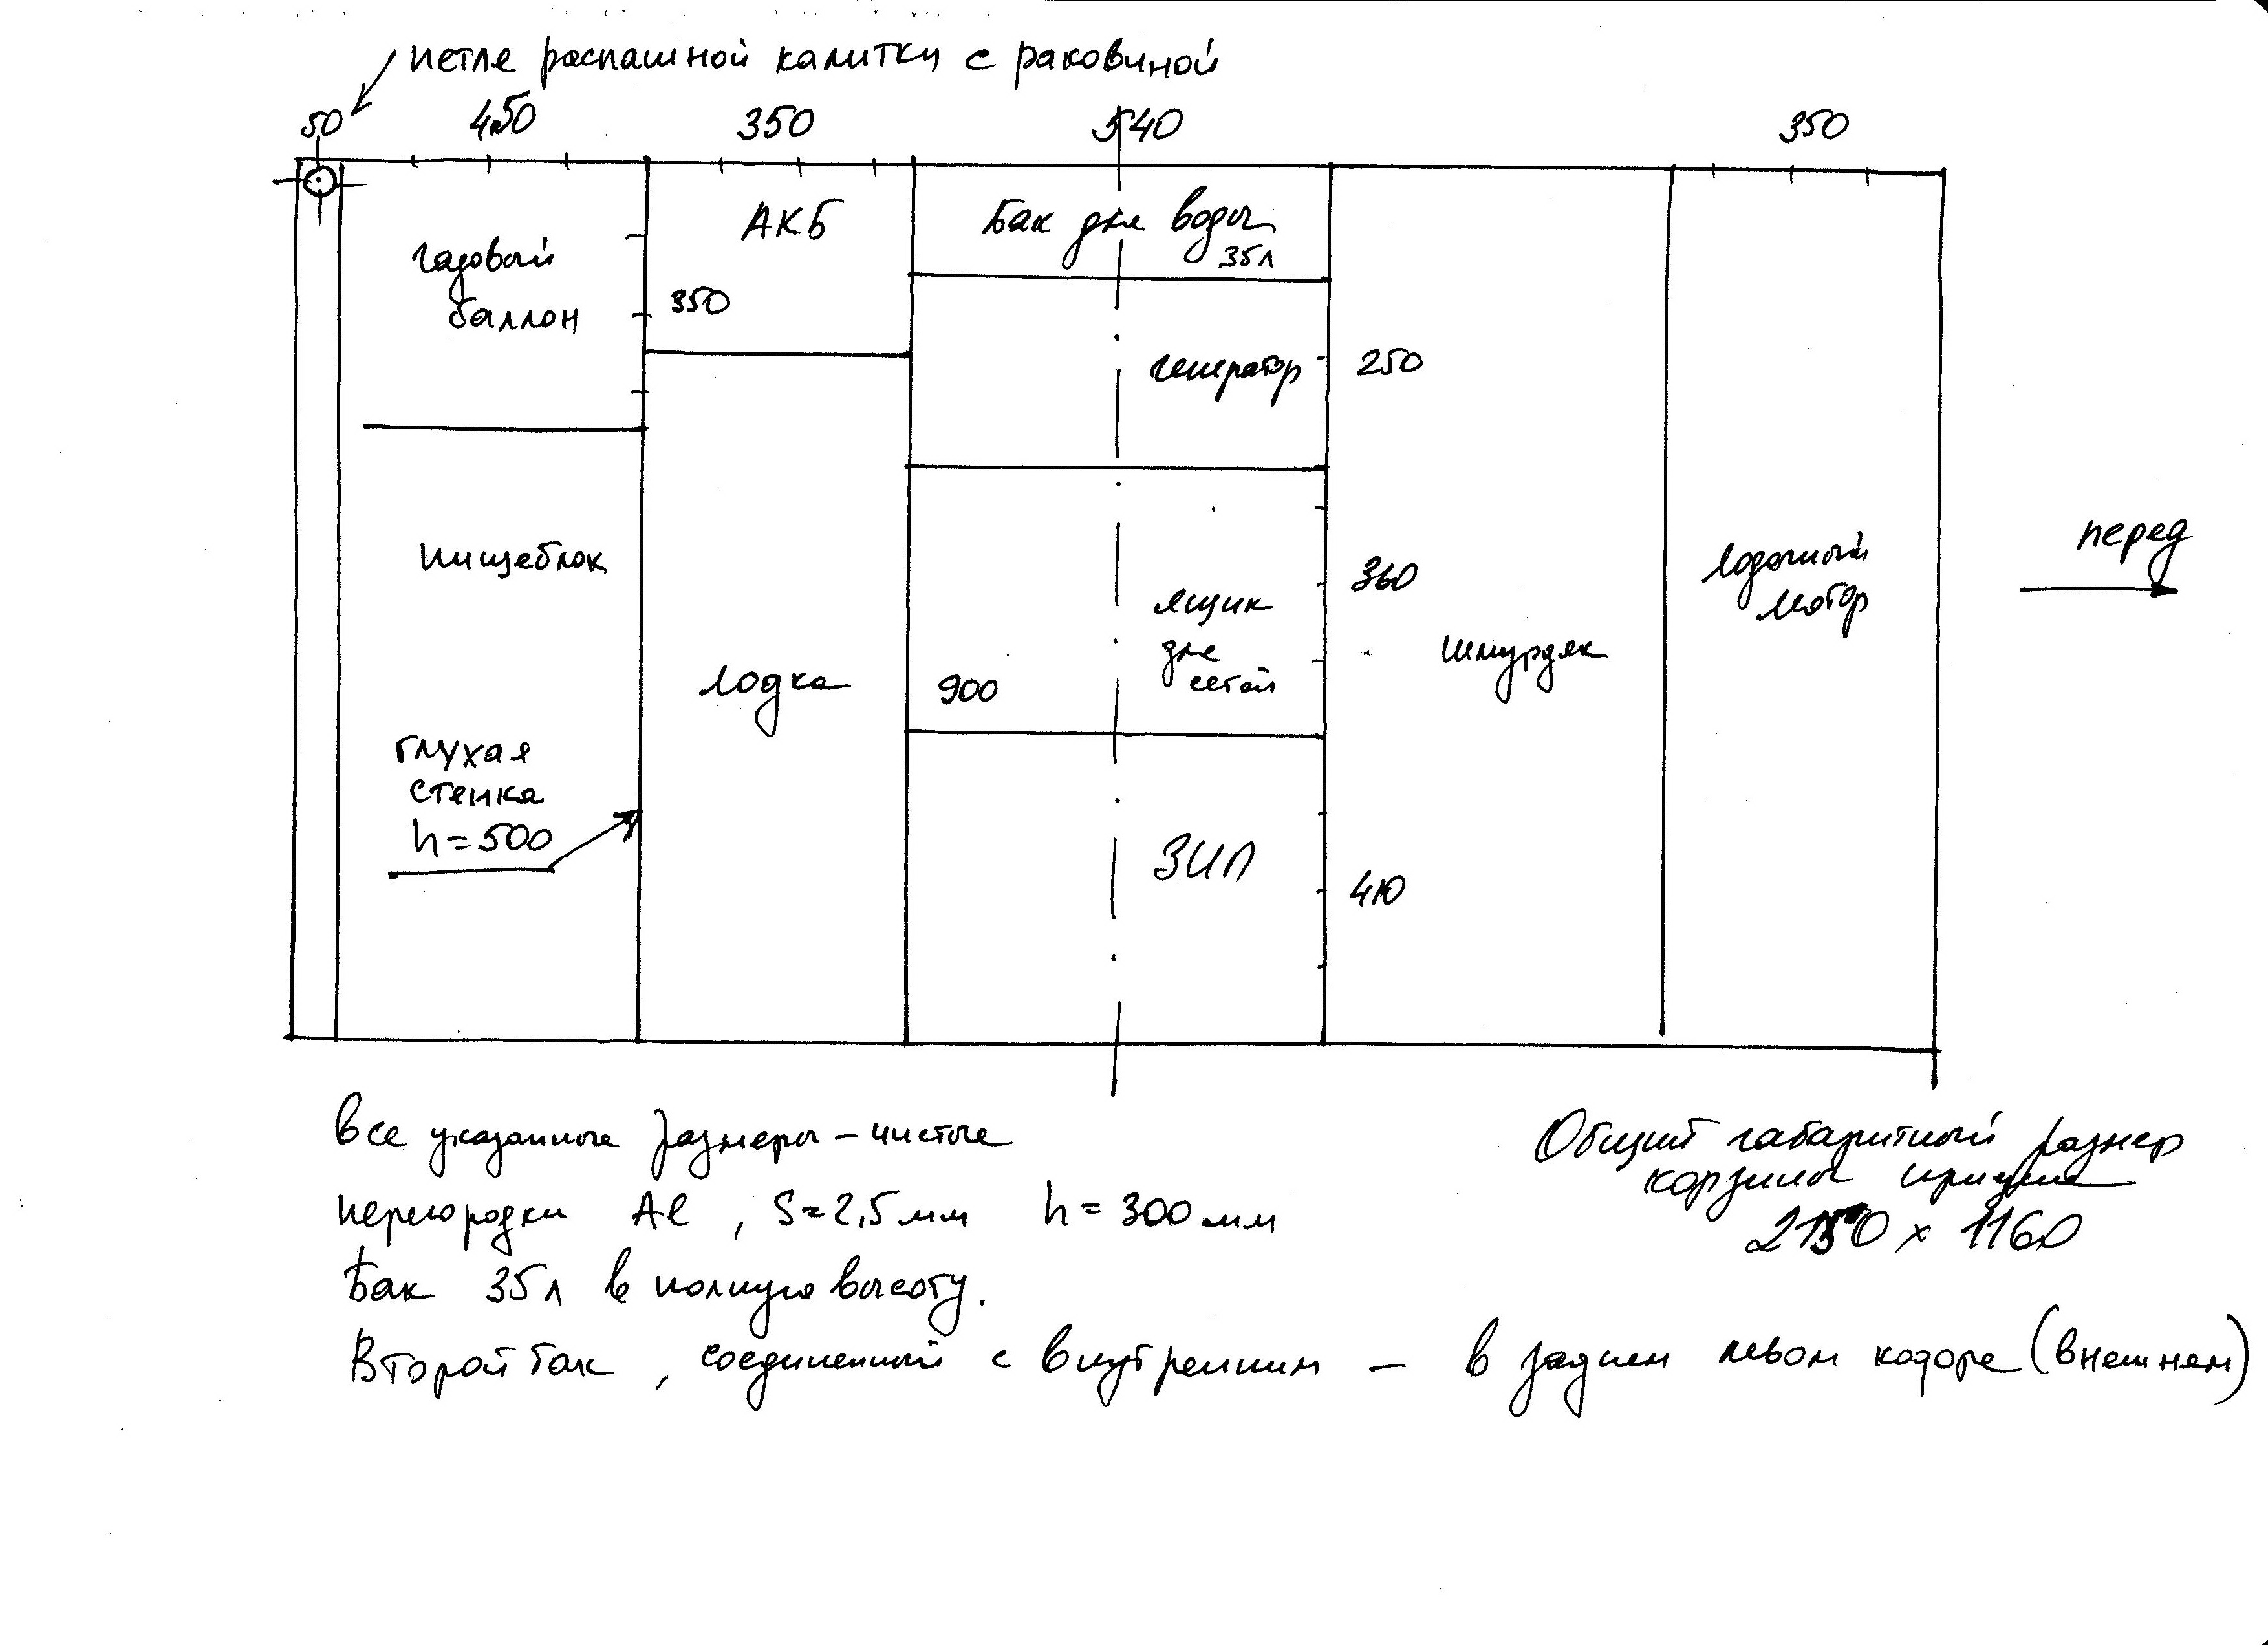 петля распашной калитки с раковиной
50 450 350 540 350
газовый
баллон
АКБ
350
Бак для воды
35л
генератор
250
пищеблок
лодка
900
ящик
для
сетей
360
шмурдяк
лодочный
мотор
перед
глухая
стенка
h=500
ЗИП
410
все указанные размеры – чистые
перегородки Al, S=2,5мм h=300мм
Бак 35л в полную высоту.
Второй бак, соединенный с внутренним – в заднем левом кофре (внешнем)
Общий габаритный размер
корзины
2150 x 1160